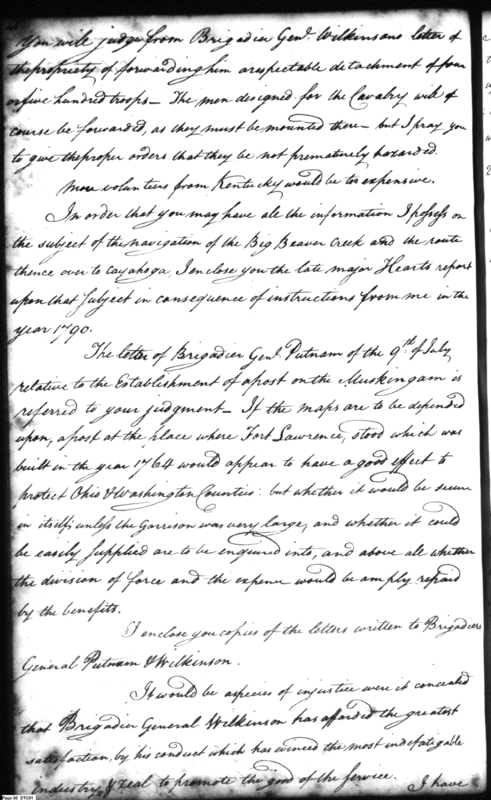 You will judge from Brigadier Genl. Wilkinsons letter of
the propriety of forwarding him a respectable detachment of four
or five hundred troops — The men designed for the Cavalry will of
course be forwarded, as they must be mounted there — but I pray you
to give the proper orders that they be not prematurely hazarded.
More volunteers from Kentucky would be too expensive.
In order that you may have all the information I possess on
the subject of the navigation of the Big Beaver Creek and the route
thence over to Cayahoga, I enclose you the late major Hearts report
upon that subject in consequence of instructions from me in the
year 1790.
The letter of Brigadier Genl. Putnam of the 9th. of July
relative to the Establishment of a post on the Muskingam is
referred to your judgment — If the maps are to be depended
upon, a post at the place where Fort Lawrence, stood which was
built in the year 1764 would appear to have a good effect to
protect Ohio & Washington Counties: but whether it would be secure
in itself, unless the Garrison was very large, and whether it could
be easily supplied are to be enquired into, and above all whether
the division of force and the expence would be amply repaid
by the benefits.
I enclose you copies of the letters written to Brigadiers
General Putnam & Wilkinson.
It would be a species of injustice were it concealed
that Brigadier General Wilkinson has afforded the greatest
satisfaction, by his conduct which has evinced the most indefatigable
industry & zeal to promote the good of the service.
I have
Page 50 DTC01